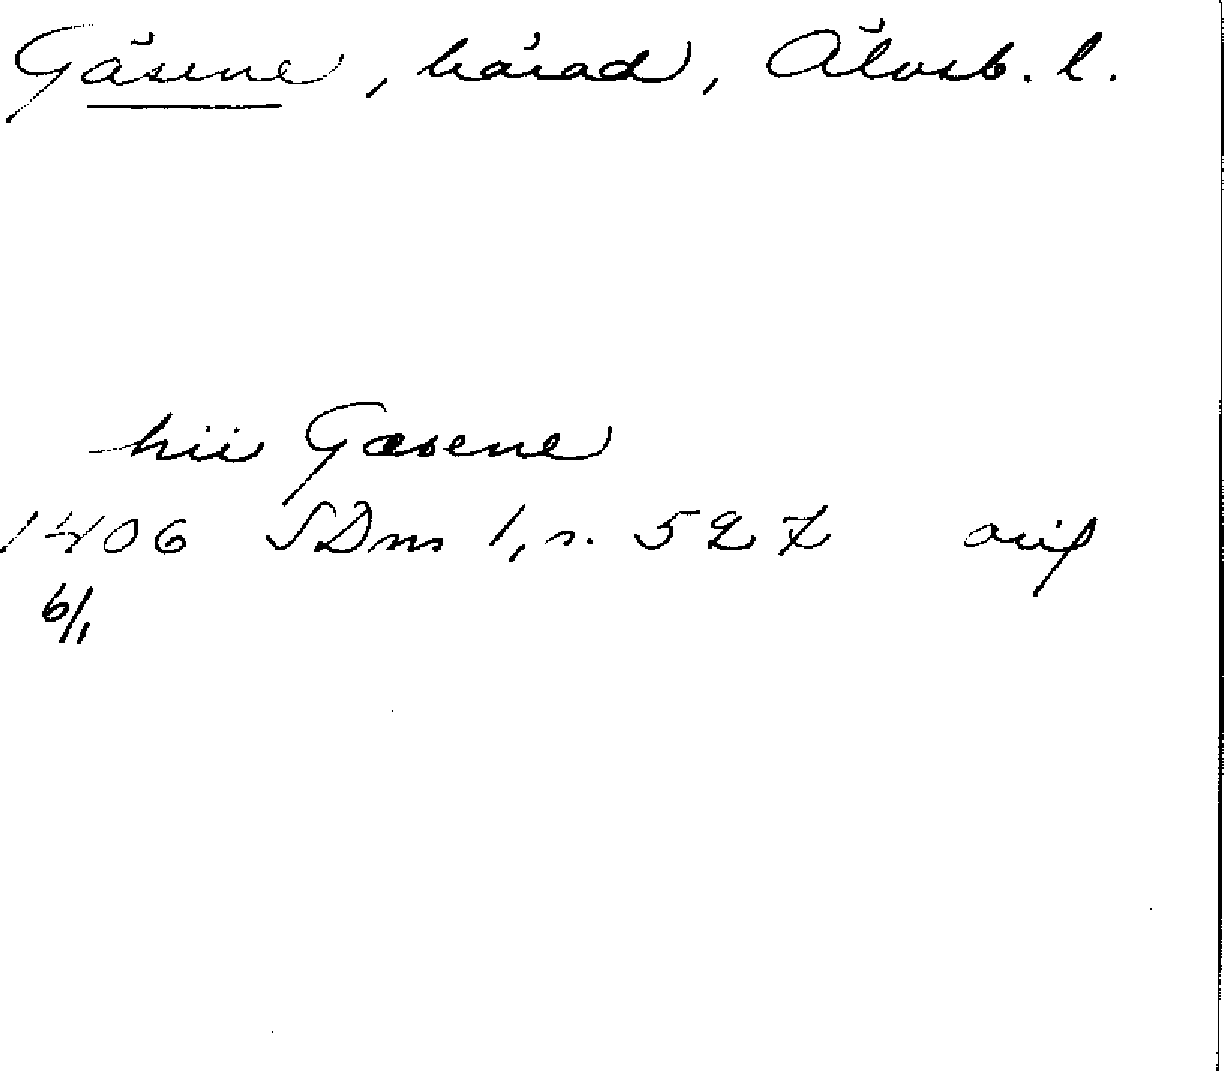 Gäsene, härad, Älvsb. l.
hii Gæsene
1406 SDns 1, s. 527 orig
6/1